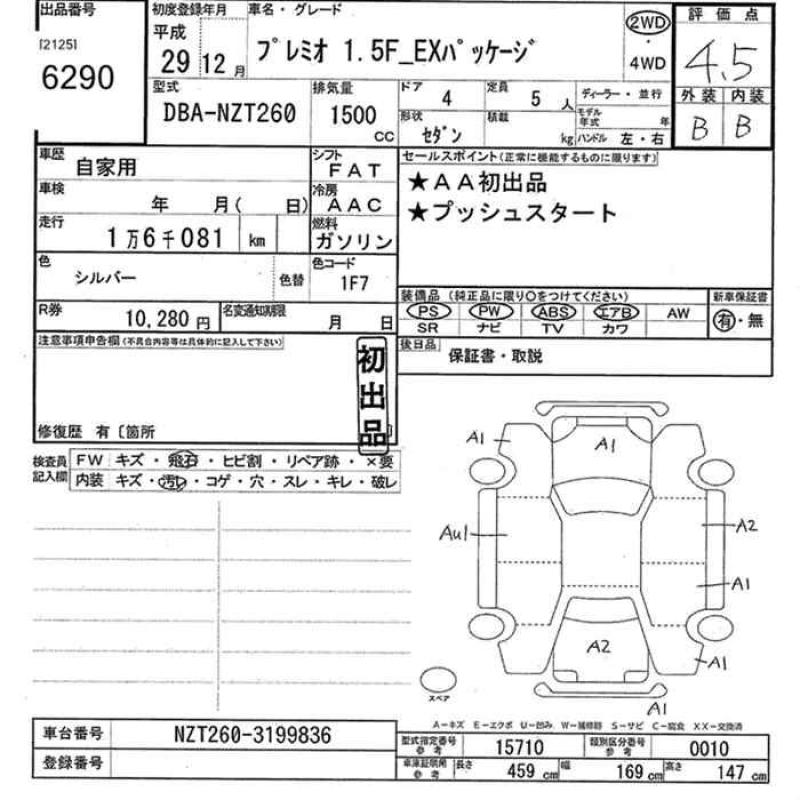 出品番号
[2125]
6290
初度登録年月
平成
29 12 月
車名・グレード
プレミオ 1.5F_EXパッケージ
2WD
・
4WD
評価点
4.5
外装 内装
B B
型式
DBA-NZT260
排気量
1500
CC
ドア 4
定員 5 人
ディーラー・並行
モデル年式 年
形状 セダン
積載 kg
ハンドル 左・右
車歴 自家用
シフト
FAT
車検 年 月( 日)
冷房
AAC
走行 1万6千081 km
燃料
ガソリン
色 シルバー
色替
色コード
1F7
R券 10,280 円
名変通知期限
月 日
セールスポイント(正常に機能するものに限ります)
★AA初出品
★プッシュスタート
装備品(純正品に限り○をつけてください)
新車保証書
PS PW ABS エアB AW
SR ナビ TV カワ
有・無
後日品 保証書・取説
注意事項申告欄(不具合内容等は具体的に記入して下さい)
初出品
修復歴 有〔箇所
検査員記入欄
FW キズ・飛石・ヒビ割・リペア跡・×要
内装 キズ・汚レ・コゲ・穴・スレ・キレ・破レ
A1
A1
Au1
A2
A1
A2
A1
A1
スペア
A−キズ E−エクボ U−凹み W−補修跡 S−サビ C−腐食 XX−交換済
車台番号 NZT260-3199836
登録番号
型式指定番号
参考
15710
類別区分番号
参考
0010
車庫証明用
参考
長さ 459 cm
幅 169 cm
高さ 147 cm